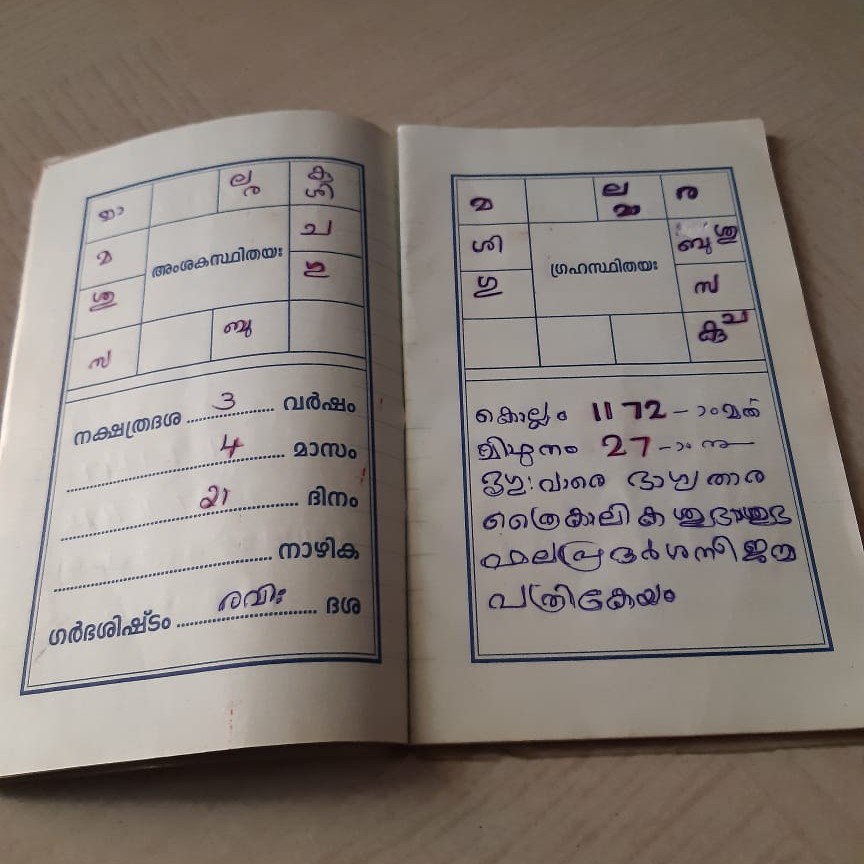 മാ ല കു
ര ശി
മ അംശകസ്ഥിതയഃ ച
ശു ഗു
സ ബു
നക്ഷത്രദശ 3 വർഷം
4 മാസം
21 ദിനം
നാഴിക
ഗർഭശിഷ്ടം രവിഃ ദശ
മ ല ര
മാ
ശി ഗ്രഹസ്ഥിതയഃ ബു ശു
ഗു സ
കു ച
കൊല്ലം 1172-ാംമത്
മിഥുനം 27-ാം നു
വാരെ താര
ത്രൈകാലിക ശുഭാശുഭ
ഫലപ്രദർശനീ ജന്മ
പത്രികേയം